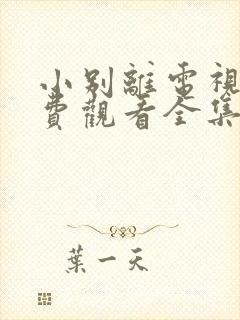 小别離電視
費觀看全集
葉一天